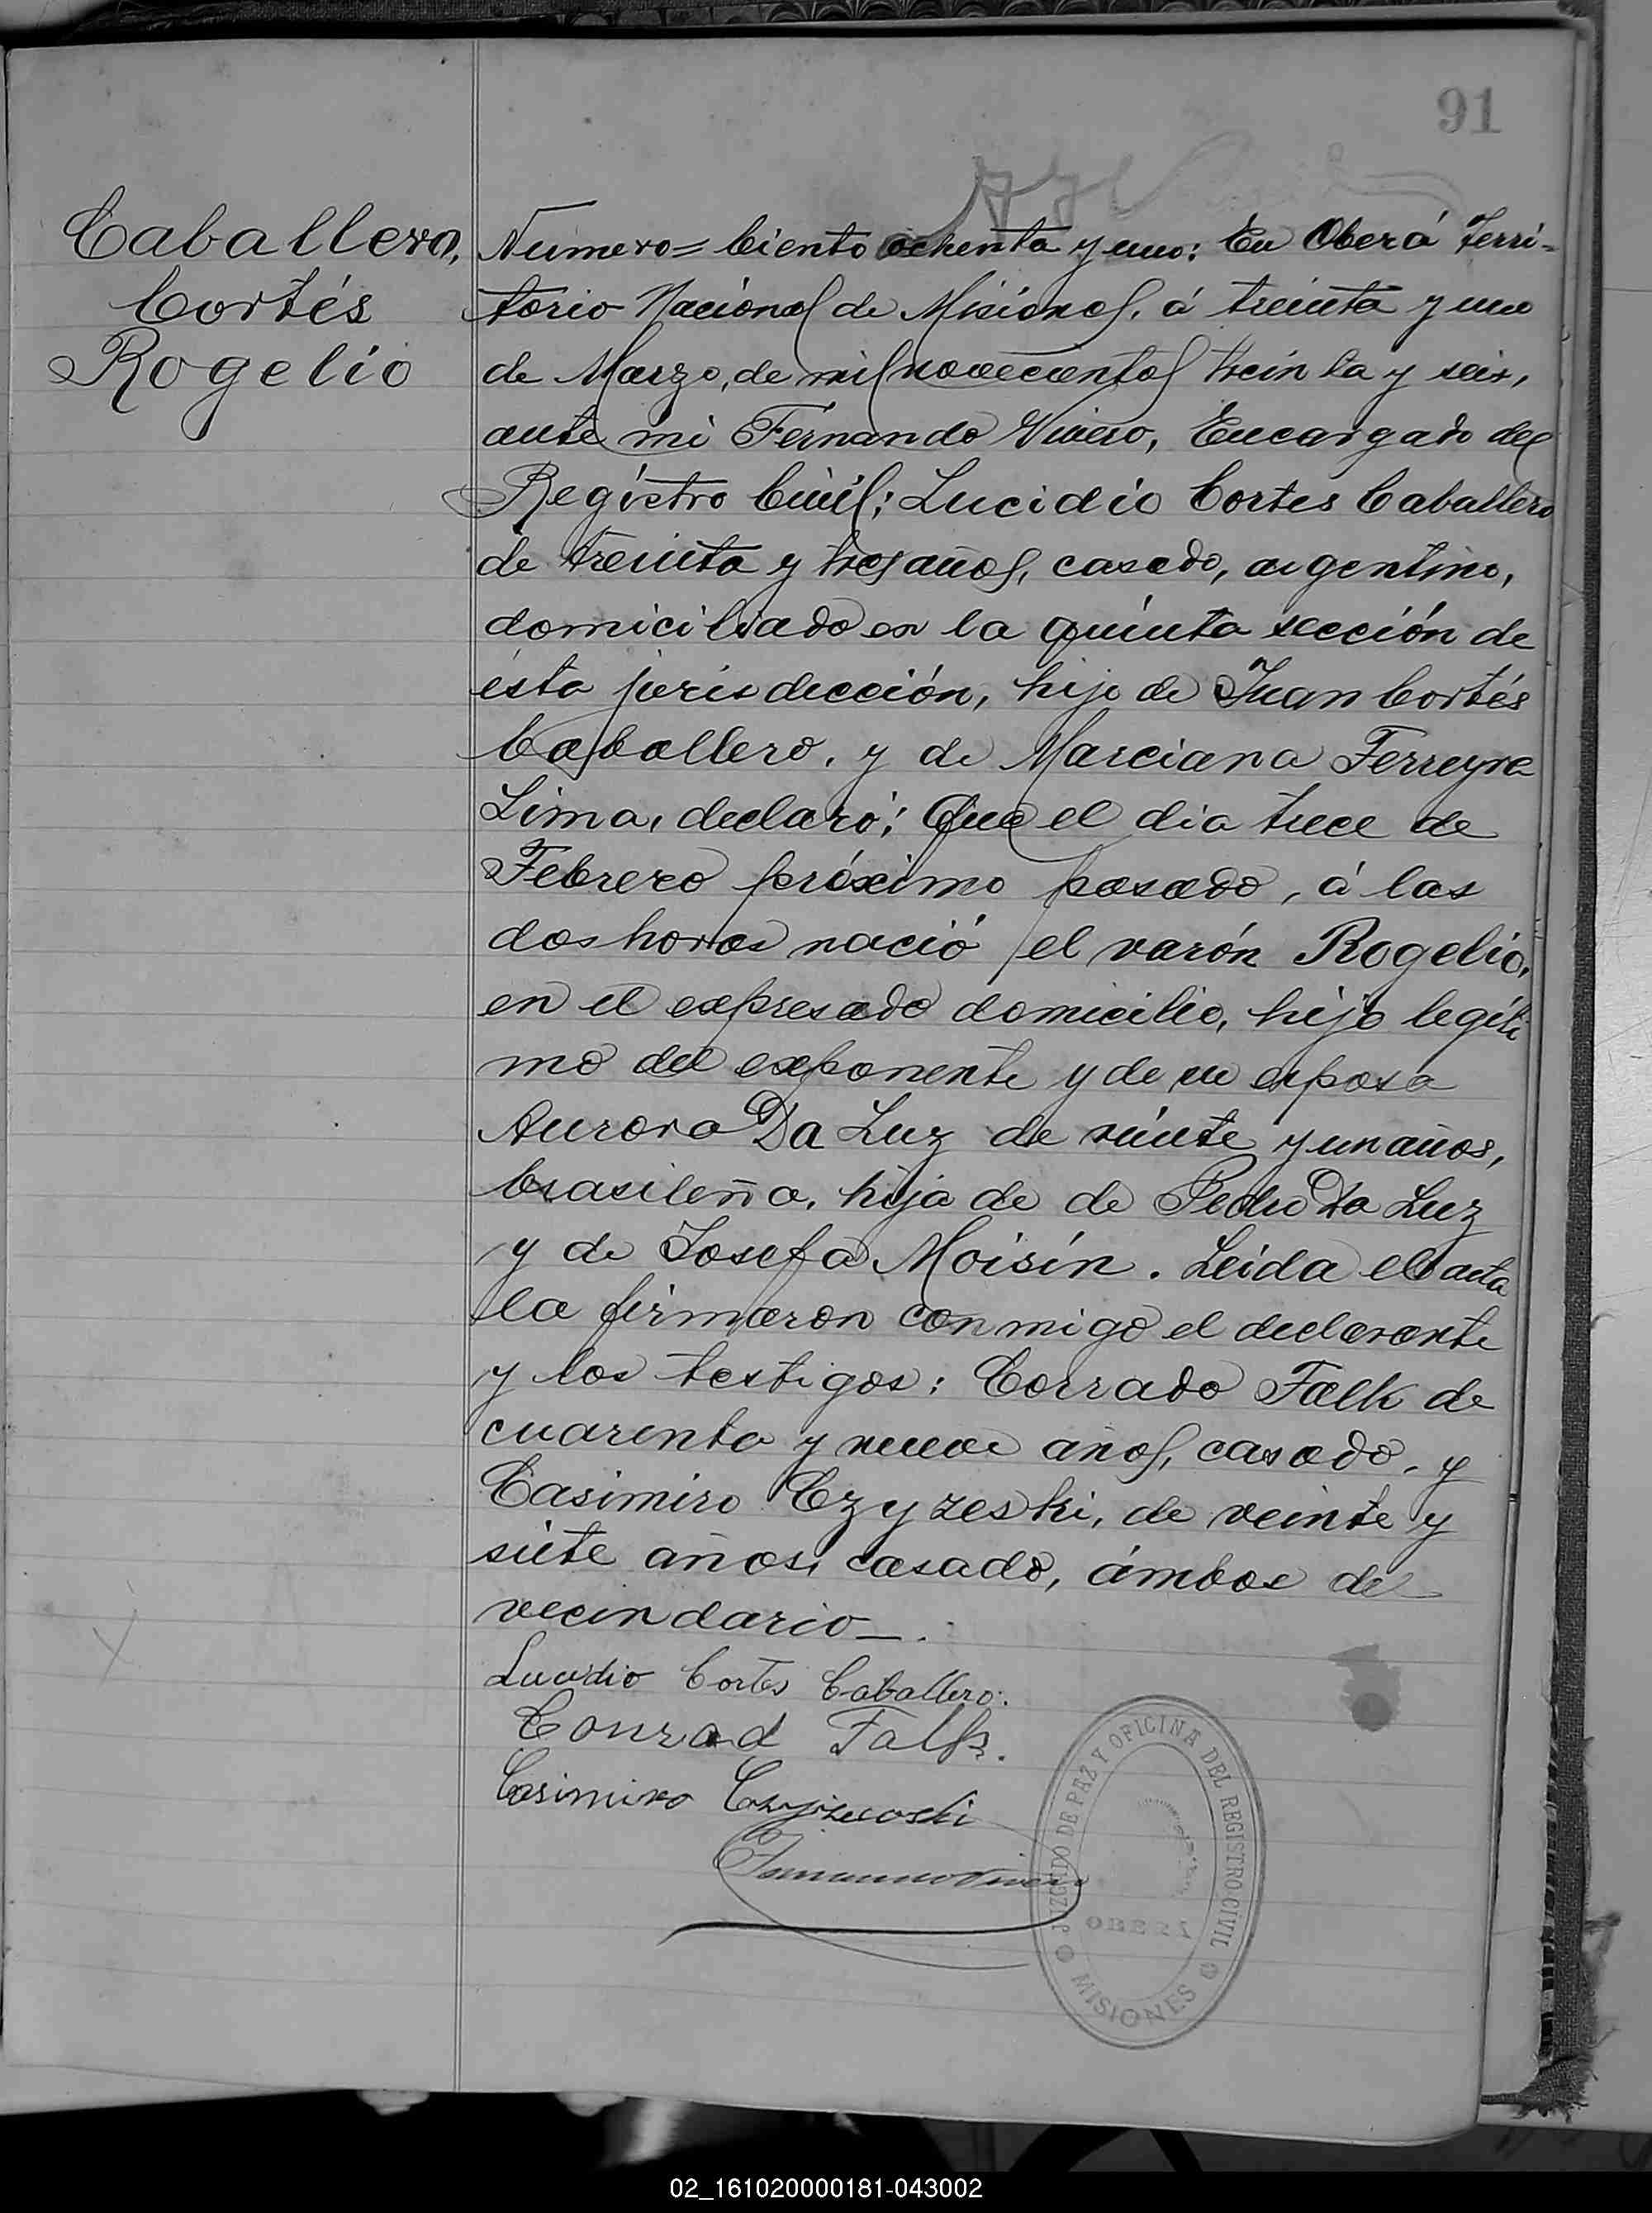 91
Caballero,
Cortés
Rogelio
Numero= Ciento ochenta y uno: En Oberá Terri-
torio Nacional de Misiones, á treinta y uno
de Marzo, de mil novecientos treinta y seis,
ante mi Fernando Vivero, Encargado del
Registro Civil; Lucidio Cortes Caballero
de treinta y tres años, casado, argentino,
domiciliado en la quinta sección de
ésta jurisdección, hijo de Juan Cortés
Caballero, y de Marciana Ferreyra
Lima, declaró: Que el dia trece de
Febrero próximo pasado, á las
dos horas nació el varón Rogelio,
en el expresado domicilio, hijo legíti
mo del exponente y de su esposa
Aurora Da Luz de viente y un años,
brasileña, hija de de Pedro Da Luz
y de Josefa Moisín. Leida el acta
la firmaron conmigo el declarante
y los testigos: Corrado Falk de
cuarenta y nueve años, casado, y
Casimiro Czyzeski, de veinte y
siete años, casado, ámbos de
vecindario_.
Lucidio Cortes Caballero.
Conrad Falk.
Casimiro
JUZGADO DE PAZ Y OFICINA DEL REGISTRO CIVIL
OBERÁ
MISIONES
02_161020000181-043002